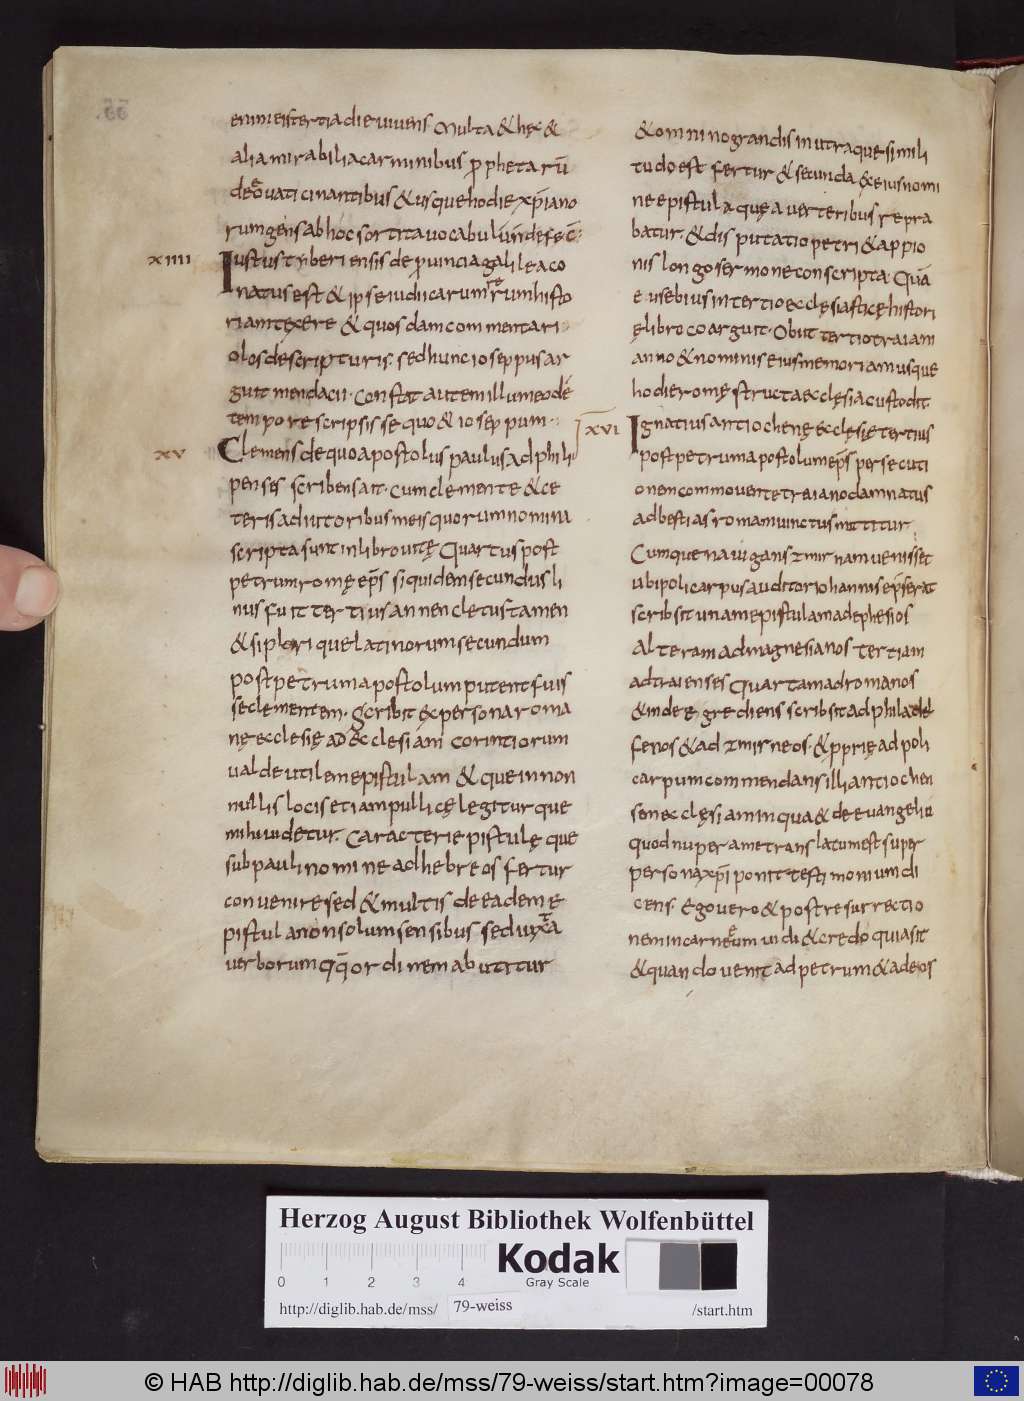 enim eis tertia die vivens Multa & hęc &
alia mirabilia carminibus ꝓphetarū
de eo vaticinantibus & usque hodie xp̄iano
rum gens ab hoc sortita uocabulū n̄ defecit
xiiii
Iustus tyberiensis de ꝓuincia galileae co
natus est & ipse iudiicarum rerum histo
riam texere & quosdam commentari
olos de scripturis. sed hunc ioseppus ar
guit mendacii. constat autem illum eo dē
tempore scripsisse quo & ioseppum.
xv
Clemens de quo apostolus paulus ad phili
penses scribens ait. cum clemente & ce
teris adiutoribus meis quorum nomina
scripta sunt in libro uitę Quartus post
petrum romę ep̄s siquidem secundus li
nus fuit tertius annencletus tamen
& si pleri que latinorum secundum
post petrum apostolum putent fuis
se clementem. Scribit ex persona roma
nę ecclesię ad ecclesiam corintiorum
ualde utilem epistulam & que in non
nullis locis etiam pullicę legitur que
mihi uidetur. caracteri epistulę que
sub pauli nomine ad hebreos fertur
conuenire sed & multis de eadem e
pistula non solum sensibus sed iuxta
uerborum qq̄ ordinem abutitur
& omnino grandis in utraque simili
tudo est fertur & secunda ex eius nomi
ne epistula quę a ueteribus repra
batur. & disputatio petri & appio
nis longo sermone conscripta. Quā
eusebius in tertio ecclesiasticę histori
ę libro coarguit. Obiit tertio traiani
anno & nominis eius memoriam usque
hodie romę structa ecclesia custodit.
xvi
Ignatius antiochenę ecclesię tertius
post petrum apostolum ep̄s persecuti
onem commouente traiano damnatus
ad bestias romam uinctus mittitur
Cumque nauigans zmirnam uenisset
ubi policarpus auditor iohannis ep̄s erat
scribsit unam epistulam ad ephesios
Alteram ad magnesianos tertiam
ad traienses Quartam ad romanos
& inde egrediens scribsit ad philadel
fenos & ad zmirneos. & ꝓprię ad poli
carpum commendans illi antiochen
sen ecclesiam in qua & de euangelio
quod nuper a me translatum est super
persona xp̄i ponit testimonium di
cens. Ego uero & post resurrectio
nem in carne eum uidi & credo quia sit
& quando uenit ad petrum & ad eos
Herzog August Bibliothek Wolfenbüttel
0 1 2 3 4
Kodak
Gray Scale
http://diglib.hab.de/mss/ 79-weiss /start.htm
© HAB http://diglib.hab.de/mss/79-weiss/start.htm?image=00078